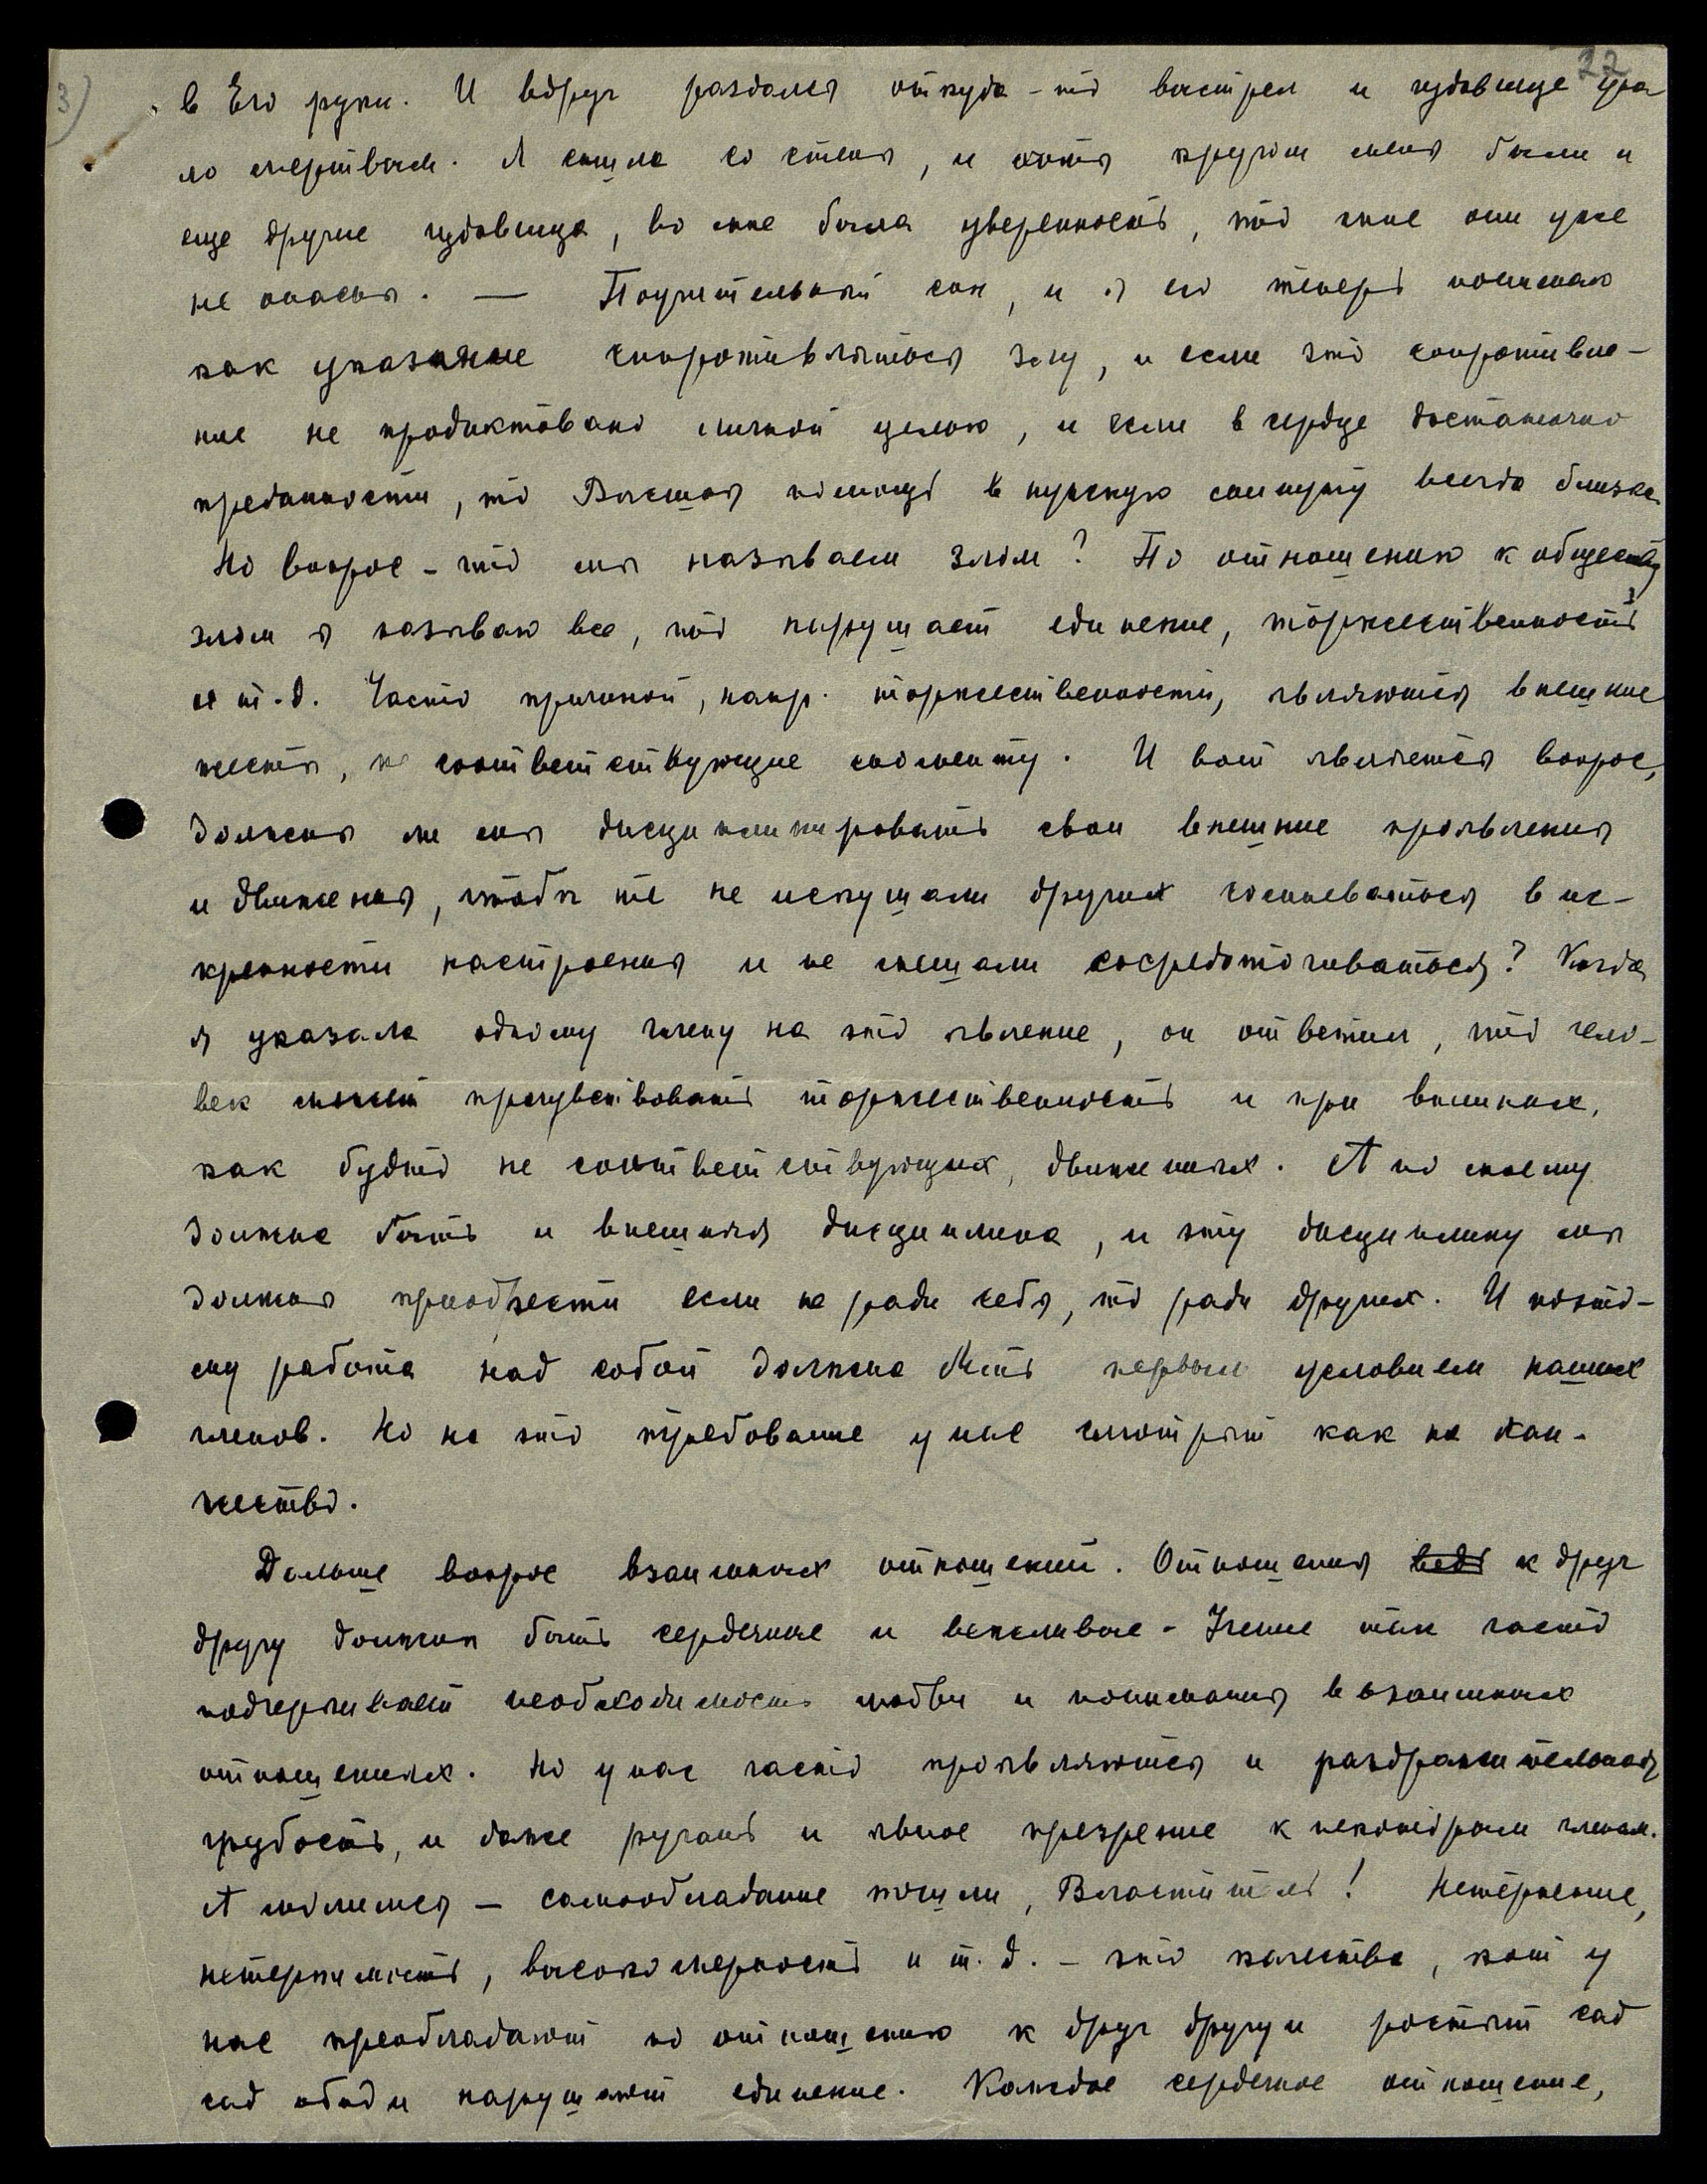 3)
22
в Его руки. И вдруг раздался откуда-то выстрел и чудовище упа
ло мертвым. Я сошла со стены, и хотя кругом меня были и
еще другие чудовища, во мне была уверенность, что мне они уже
не опасны. — Поучительный сон, и я его теперь понимаю
как указание сопротивляться злу, и если это сопротивле-
ние не продиктовано личной целью, и если в сердце достаточно
преданности, то Высшая помощь в нужную минуту всегда близка
Но вопрос - что мы называем злом? По отношению к обществу
злом я называю все, что нарушает единение, торжественность
и т.д. Часто причиной, напр. торжественности, являются внешние
жесты, не соответствующие моменту. И вот является вопрос,
должны ли мы дисциплинировать свои внешние проявления
и движения, чтобы те не искушали других сомневаться в ис-
кренности настроения и не мешали сосредоточиваться? Когда
я указала одному члену на это явление, он ответил, что чело-
век может прочувствовать торжественность и при внешних,
как будто не соответствующих, движениях. А по моему
должна быть и внешняя дисциплина, и эту дисциплину мы
должны приобрести если не ради себя, то ради других. И поэто-
му работа над собой должна быть первым условием наших
членов. Но на это требование у нас смотрят как на хан-
жество.
Дальше вопрос взаимных отношений. Отношения к друг
другу должны быть сердечные и вежливые - Учение так часто
подчеркивает необходимость любви и понимания в взаимных
отношениях. Но у нас часто проявляются и раздражительность,
грубость, и даже ругань и явное презрение к некоторым членам.
А молимся — самообладание пошли, Властитель! Нетерпение,
нетерпимость, высокомерность и т. д. - это качества, кот у
нас преобладают по отношению к друг другу и ростят сад
сад обид и нарушают единение. Каждое сердечное отношение,